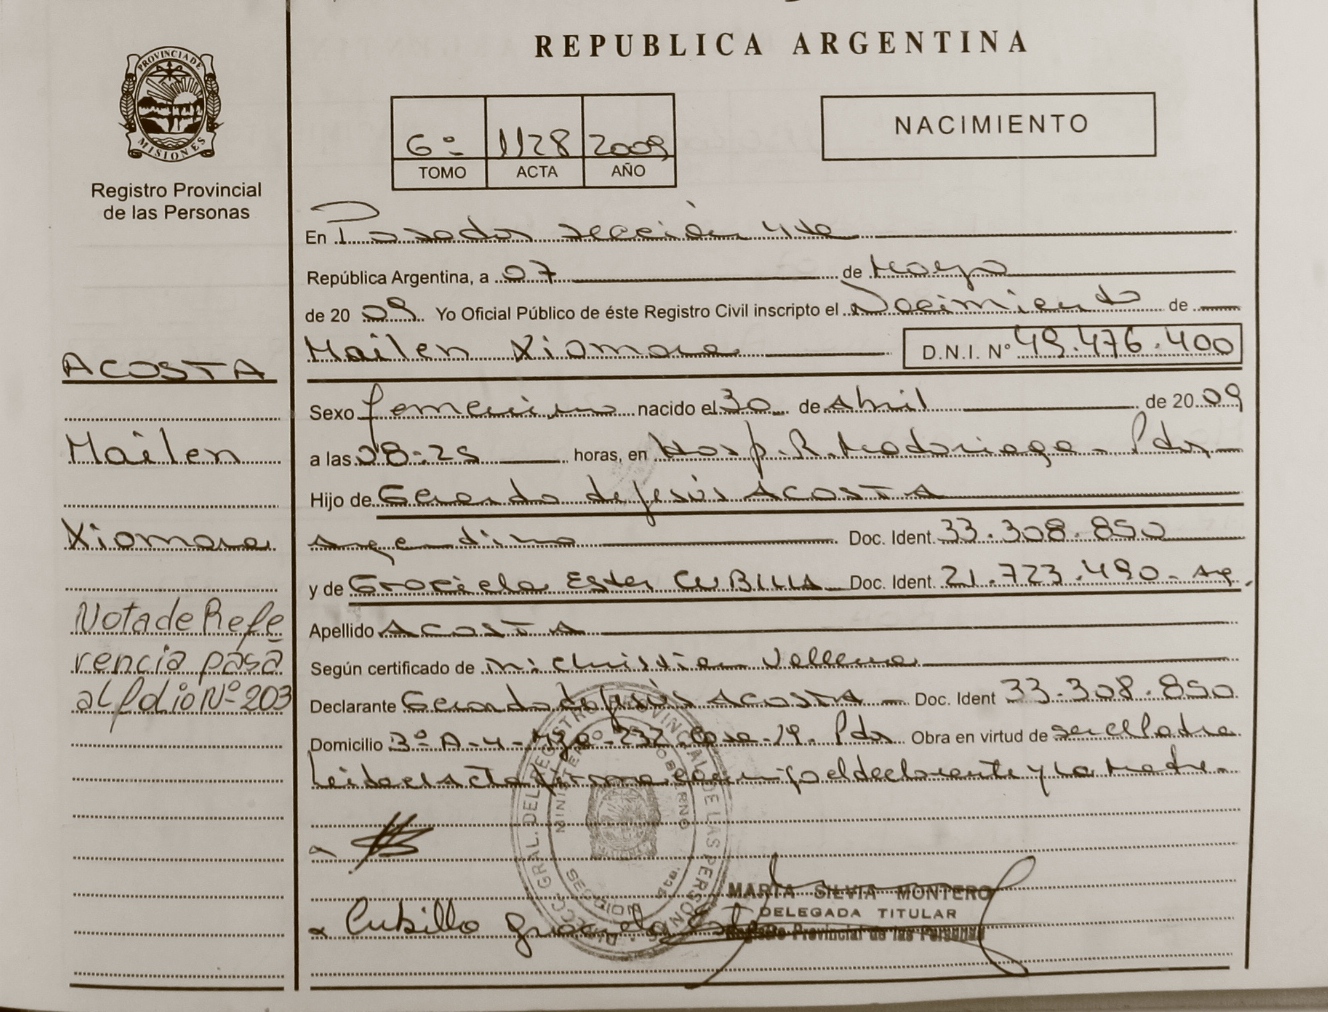 REPUBLICA ARGENTINA
PROVINCIA DE
MISIONES
Registro Provincial
de las Personas
6º 1128 2009
TOMO ACTA AÑO
NACIMIENTO
En Posadas sección 4ta
República Argentina, a 07 de Mayo
de 20 09 Yo Oficial Público de éste Registro Civil inscripto el Nacimiento de
Mailen Xiomara D.N.I. Nº 49.476.400
ACOSTA
Mailen
Xiomara
Nota de Refe
rencia pasa
al folio Nº 203
Sexo femenino nacido el 30 de Abril de 20 09
a las 08:25 horas, en Hosp. R. Madariaga - Pdas
Hijo de Gerardo de Jesús ACOSTA
Argentino Doc. Ident. 33.308.850
y de Graciela Ester CUBILLA Doc. Ident. 21.723.490 - Arg.
Apellido ACOSTA
Según certificado de Christian
Declarante Gerardo de Jesús ACOSTA Doc. Ident 33.308.850
Domicilio 232 Casa 19. Pdas Obra en virtud de ser el Padre
Leida el Acta firma conmigo el declarante y La Madre.
DEL REGISTRO PROVINCIAL DE LAS PERSONAS
MINISTERIO DE GOBIERNO
SECCION 4ta.
MARTA SILVIA MONTERO
DELEGADA TITULAR
Registro Provincial de las Personas
Cubilla Graciela